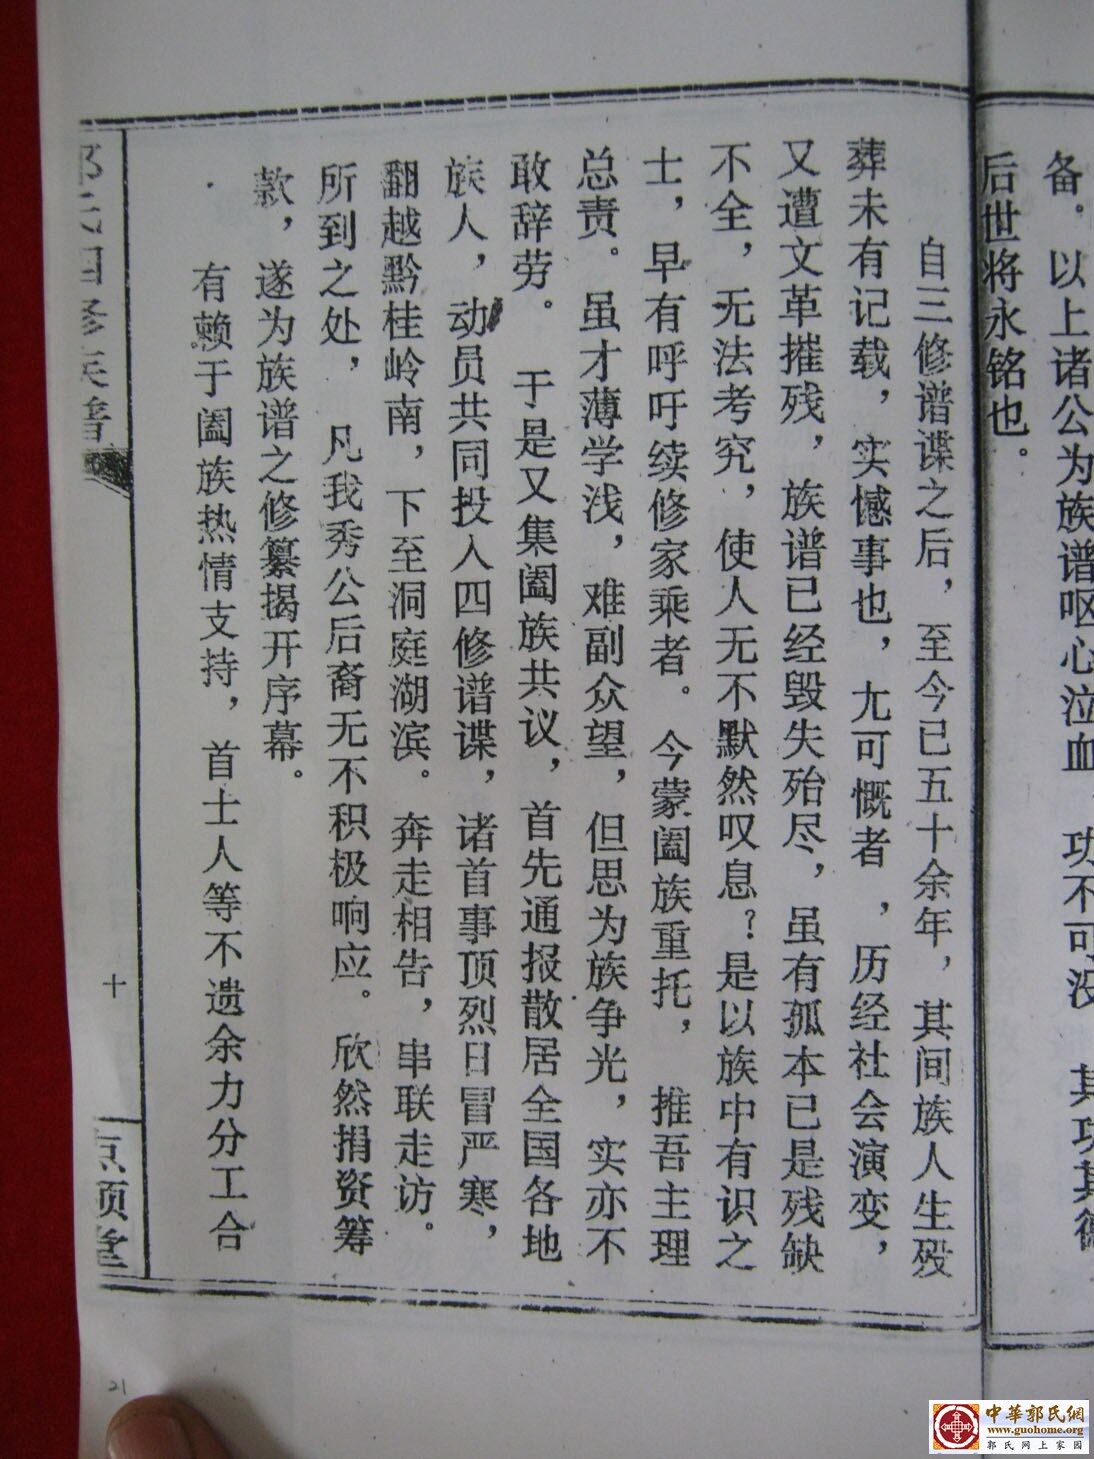 备。以上诸公为族谱呕心泣血,功不可没 其功其德
后世将永铭也。
自三修谱谍之后,至今已五十余年,其间族人生殁
葬未有记载,实憾事也,尢可慨者,历经社会演变,
又遭文革摧残,族谱已经毁失殆尽,虽有孤本已是残缺
不全,无法考究,使人无不默然叹息?是以族中有识之
士,早有呼吁续修家乘者。今蒙阖族重托,推吾主理
总责。虽才薄学浅,难副众望,但思为族争光,实亦不
敢辞劳。于是又集阖族共议,首先通报散居全国各地
族人,动员共同投入四修谱谍,诸首事顶烈日冒严寒,
翻越黔桂岭南,下至洞庭湖滨。奔走相告,串联走访。
所到之处,凡我秀公后裔无不积极响应。欣然捐资筹
款,遂为族谱之修纂揭开序幕。
有赖于阖族热情支持,首士人等不遗余力分工合
郭氏四修族谱
十
点颂堂
21
中華郭氏網
www.guohome.org
郭氏网上家园